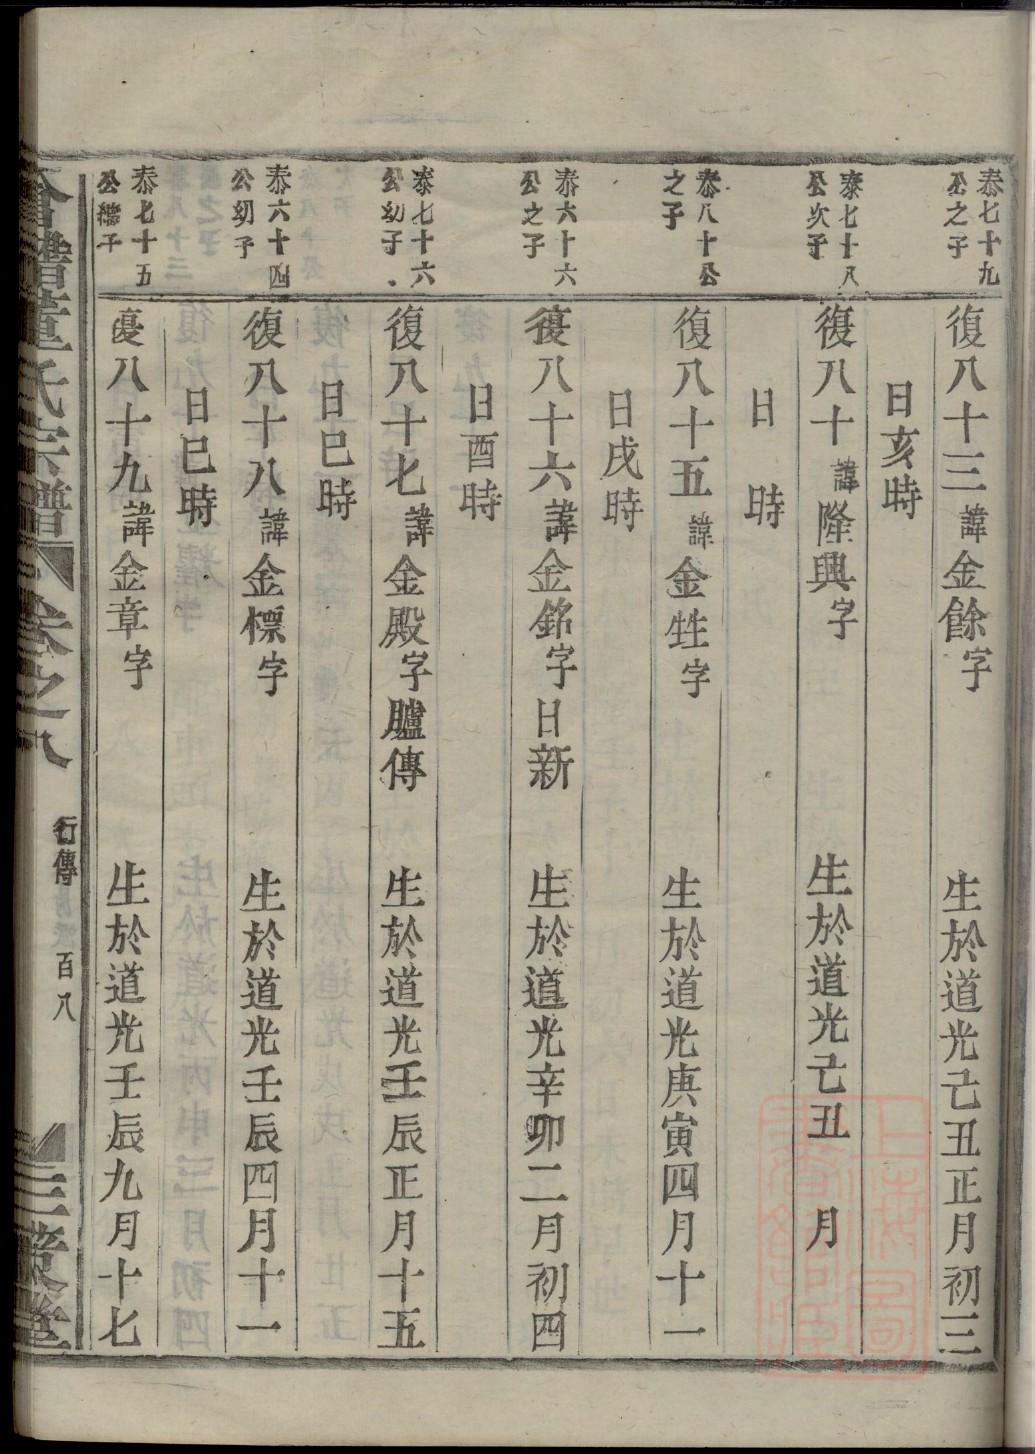 泰七十九
公之子
復八十三諱金餘字 生於道光己丑正月初三
日亥時
泰七十八
公次子
復八十諱隆興字 生於道光己丑 月
日 時
泰八十公
之子
復八十五諱金甡字 生於道光庚寅四月十一
日戌時
泰六十六
公之子
復八十六諱金銘字日新 生於道光辛卯二月初四
日酉時
泰七十六
公幼子
復八十七諱金殿字臚傳 生於道光壬辰正月十五
日巳時
泰六十四
公幼子
復八十八諱金標字 生於道光壬辰四月十一
日巳時
泰七十五
公繼子
復八十九諱金章字 生於道光壬辰九月十七
董氏宗譜 卷之八 行傳 百八 三策堂